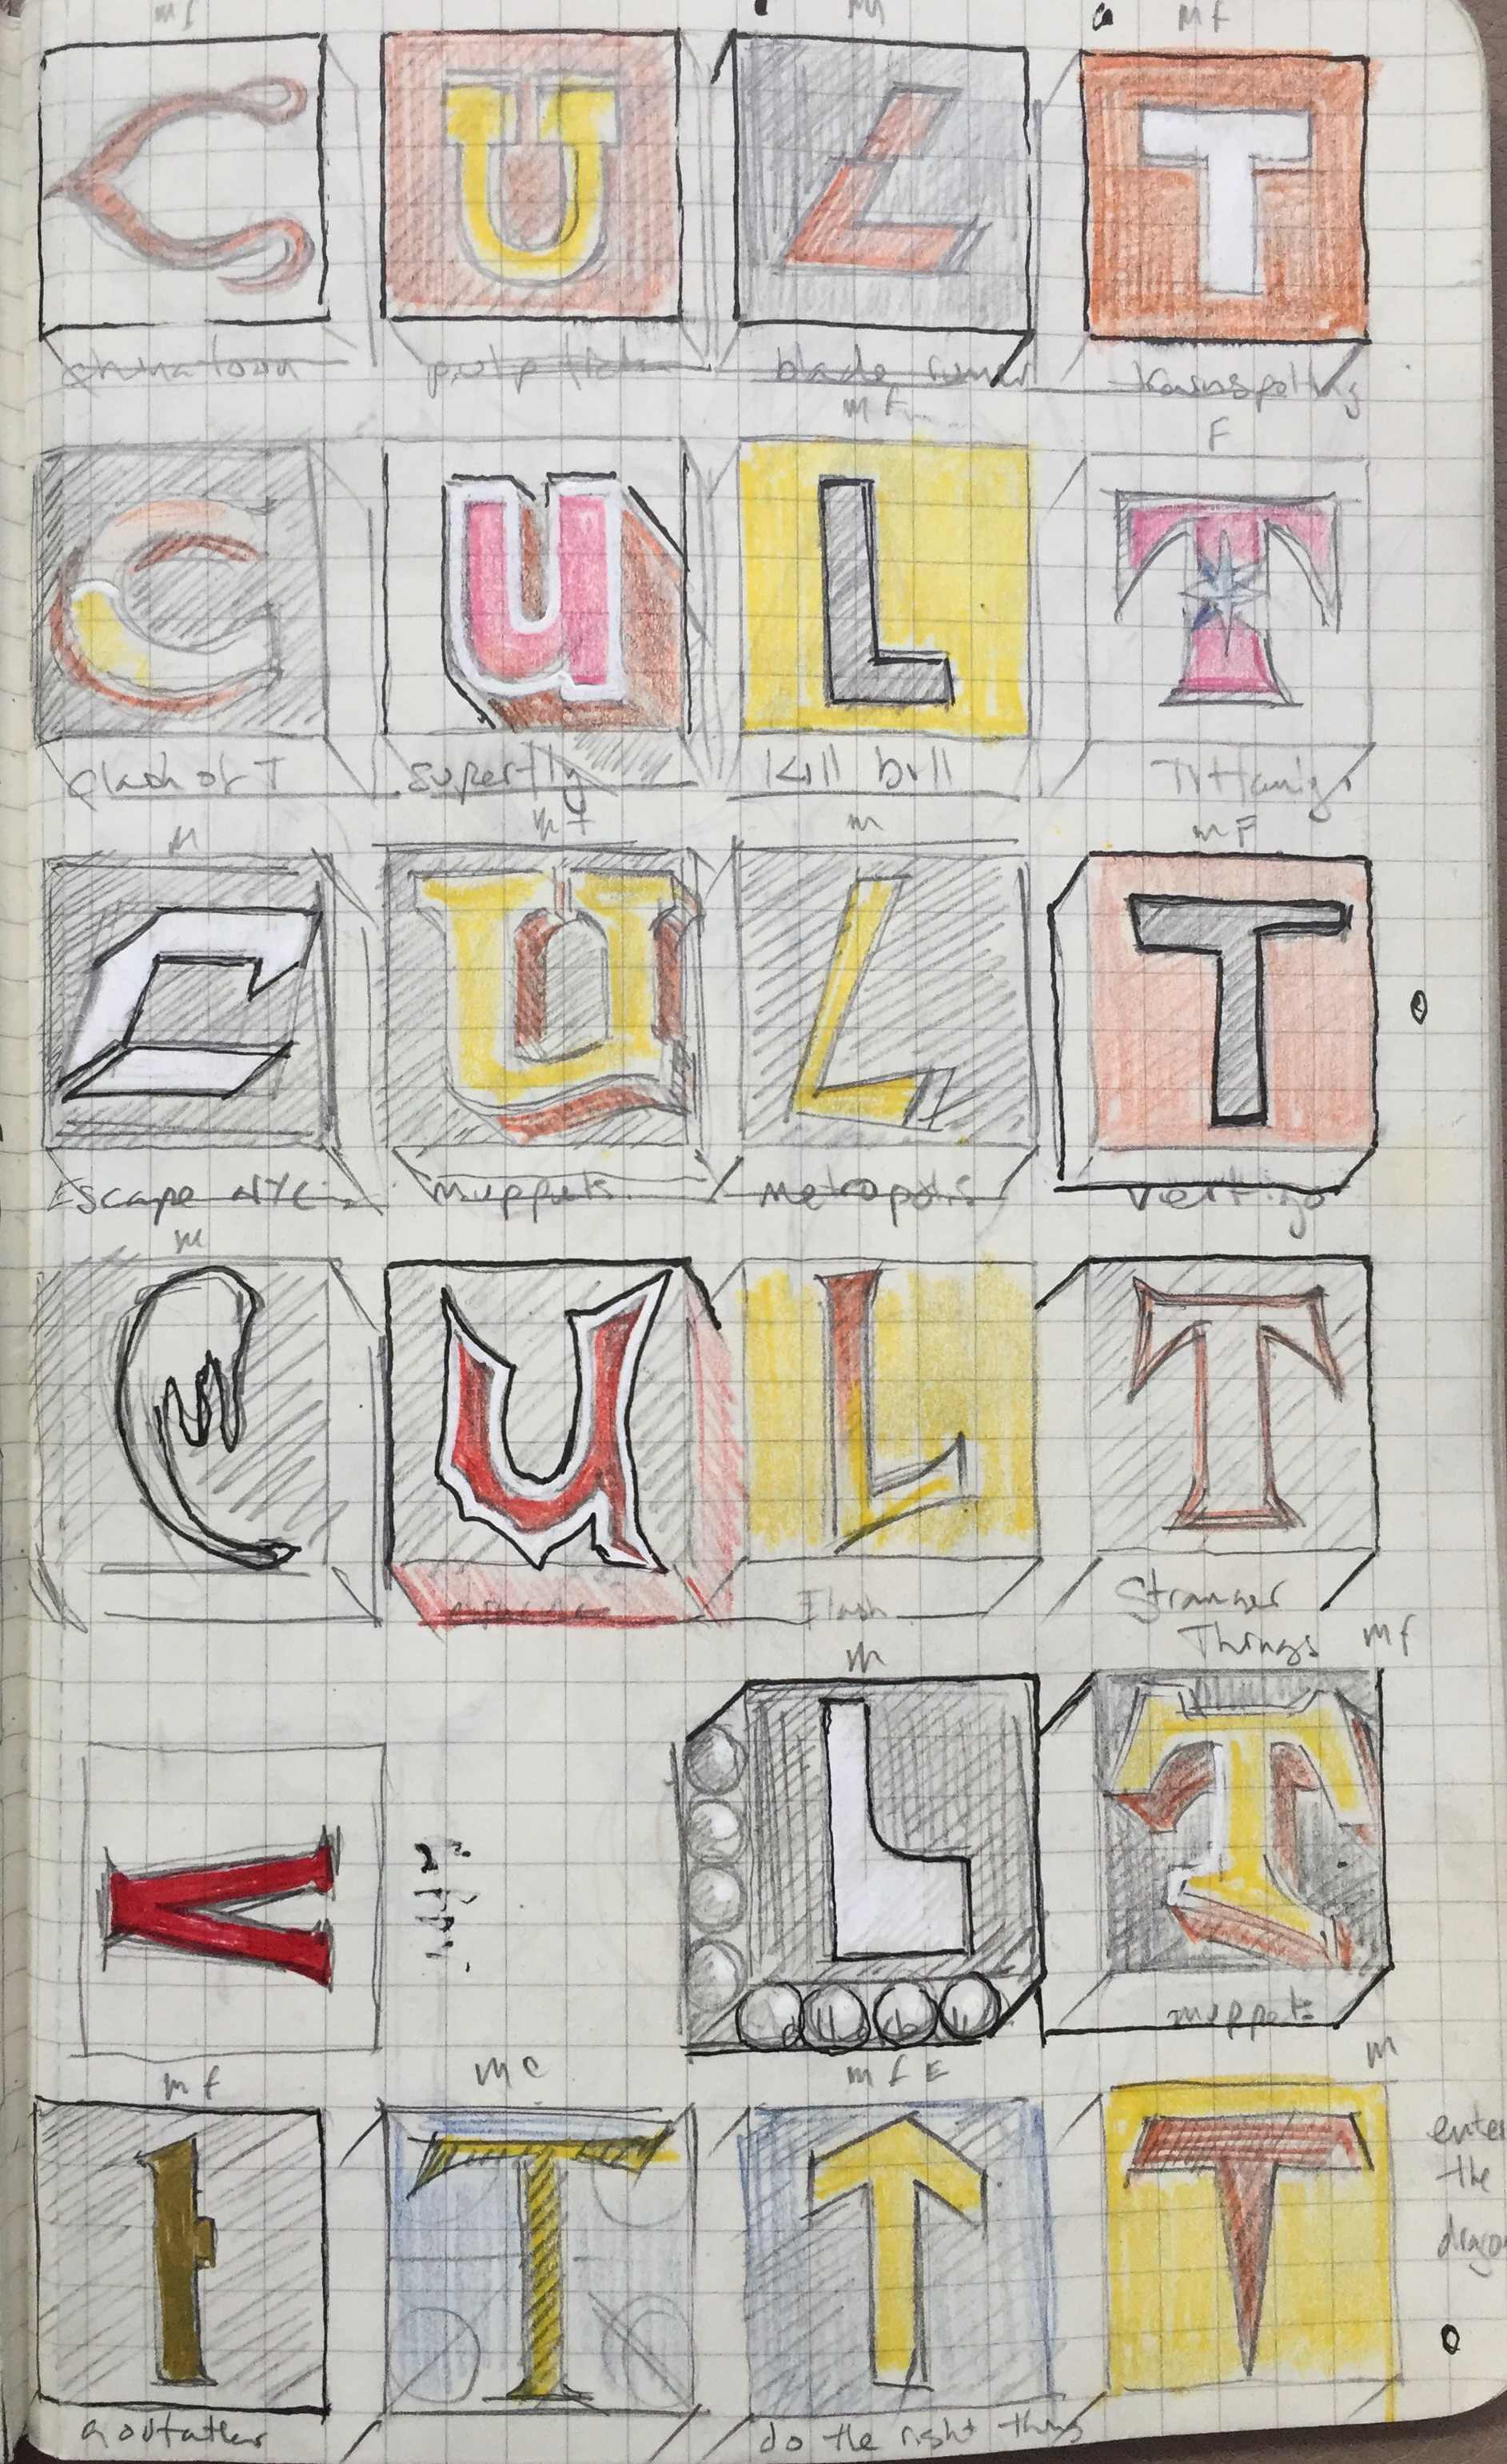 mf
M
MF
C U L T
chinatown pulp fiction blade runner trainspotting
mf
F
C U L T
clash of T superfly kill bill
M
mf
m
mF
C U L T
Escape NYC muppets metropolis vertigo
M
C U L T
Flash Stranger
Things
mf
m
L T
muppets
mf
mc
mfE
m
T T T
enter
the
godfather do the right thing